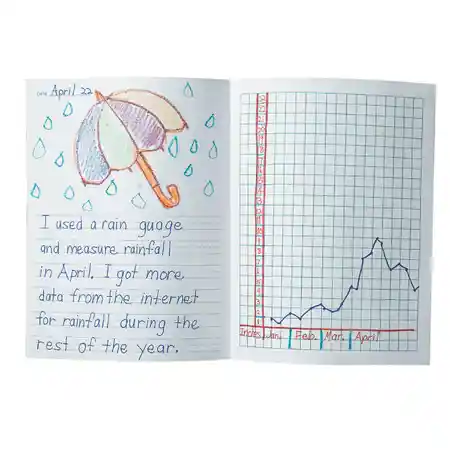 April 22
I used a rain guage
and measure rainfall
in April. I got more
data from the internet
for rainfall during the
rest of the year.
Inches Jan. Feb. Mar. April